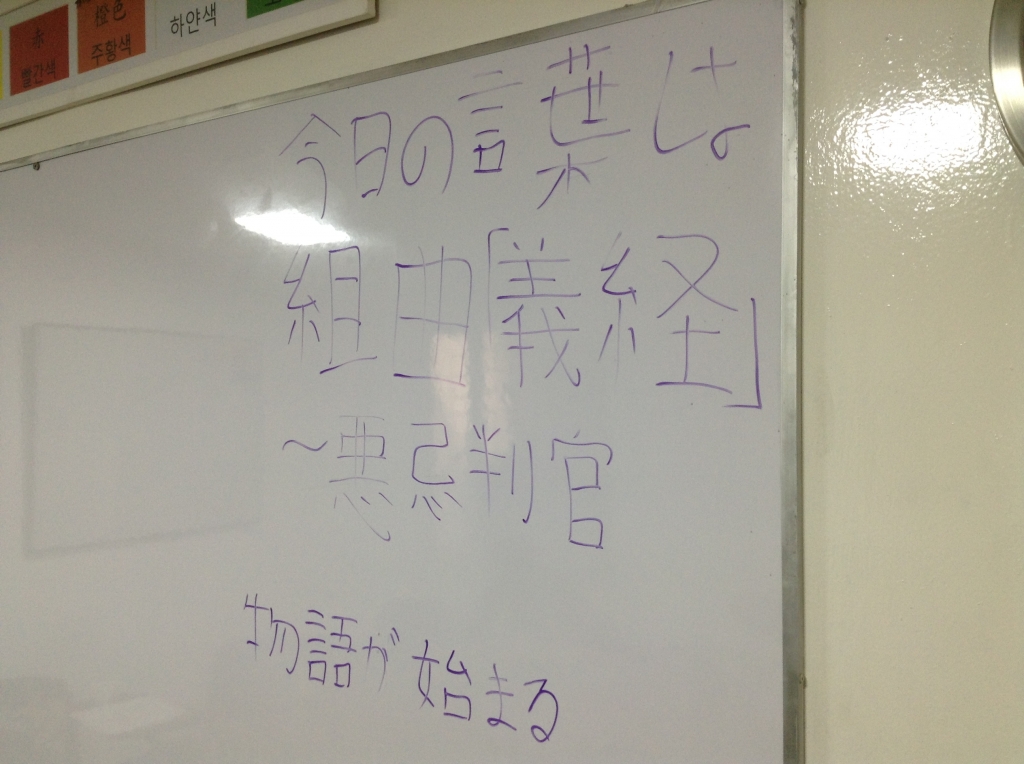 赤 橙色
빨간색 주황색 하얀색
今日の言葉は
組曲「義経」
~悪忌判官
物語が始まる